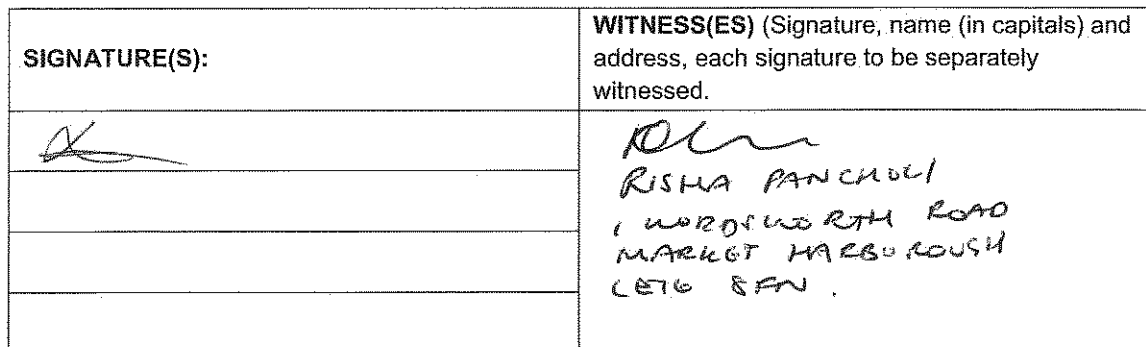 SIGNATURE(S):
WITNESS(ES) (Signature, name (in capitals) and
address, each signature to be separately
witnessed.
RISHA PANCHOLI
1 WORDSWORTH ROAD
MARKET HARBOROUGH
LE16 8FN.